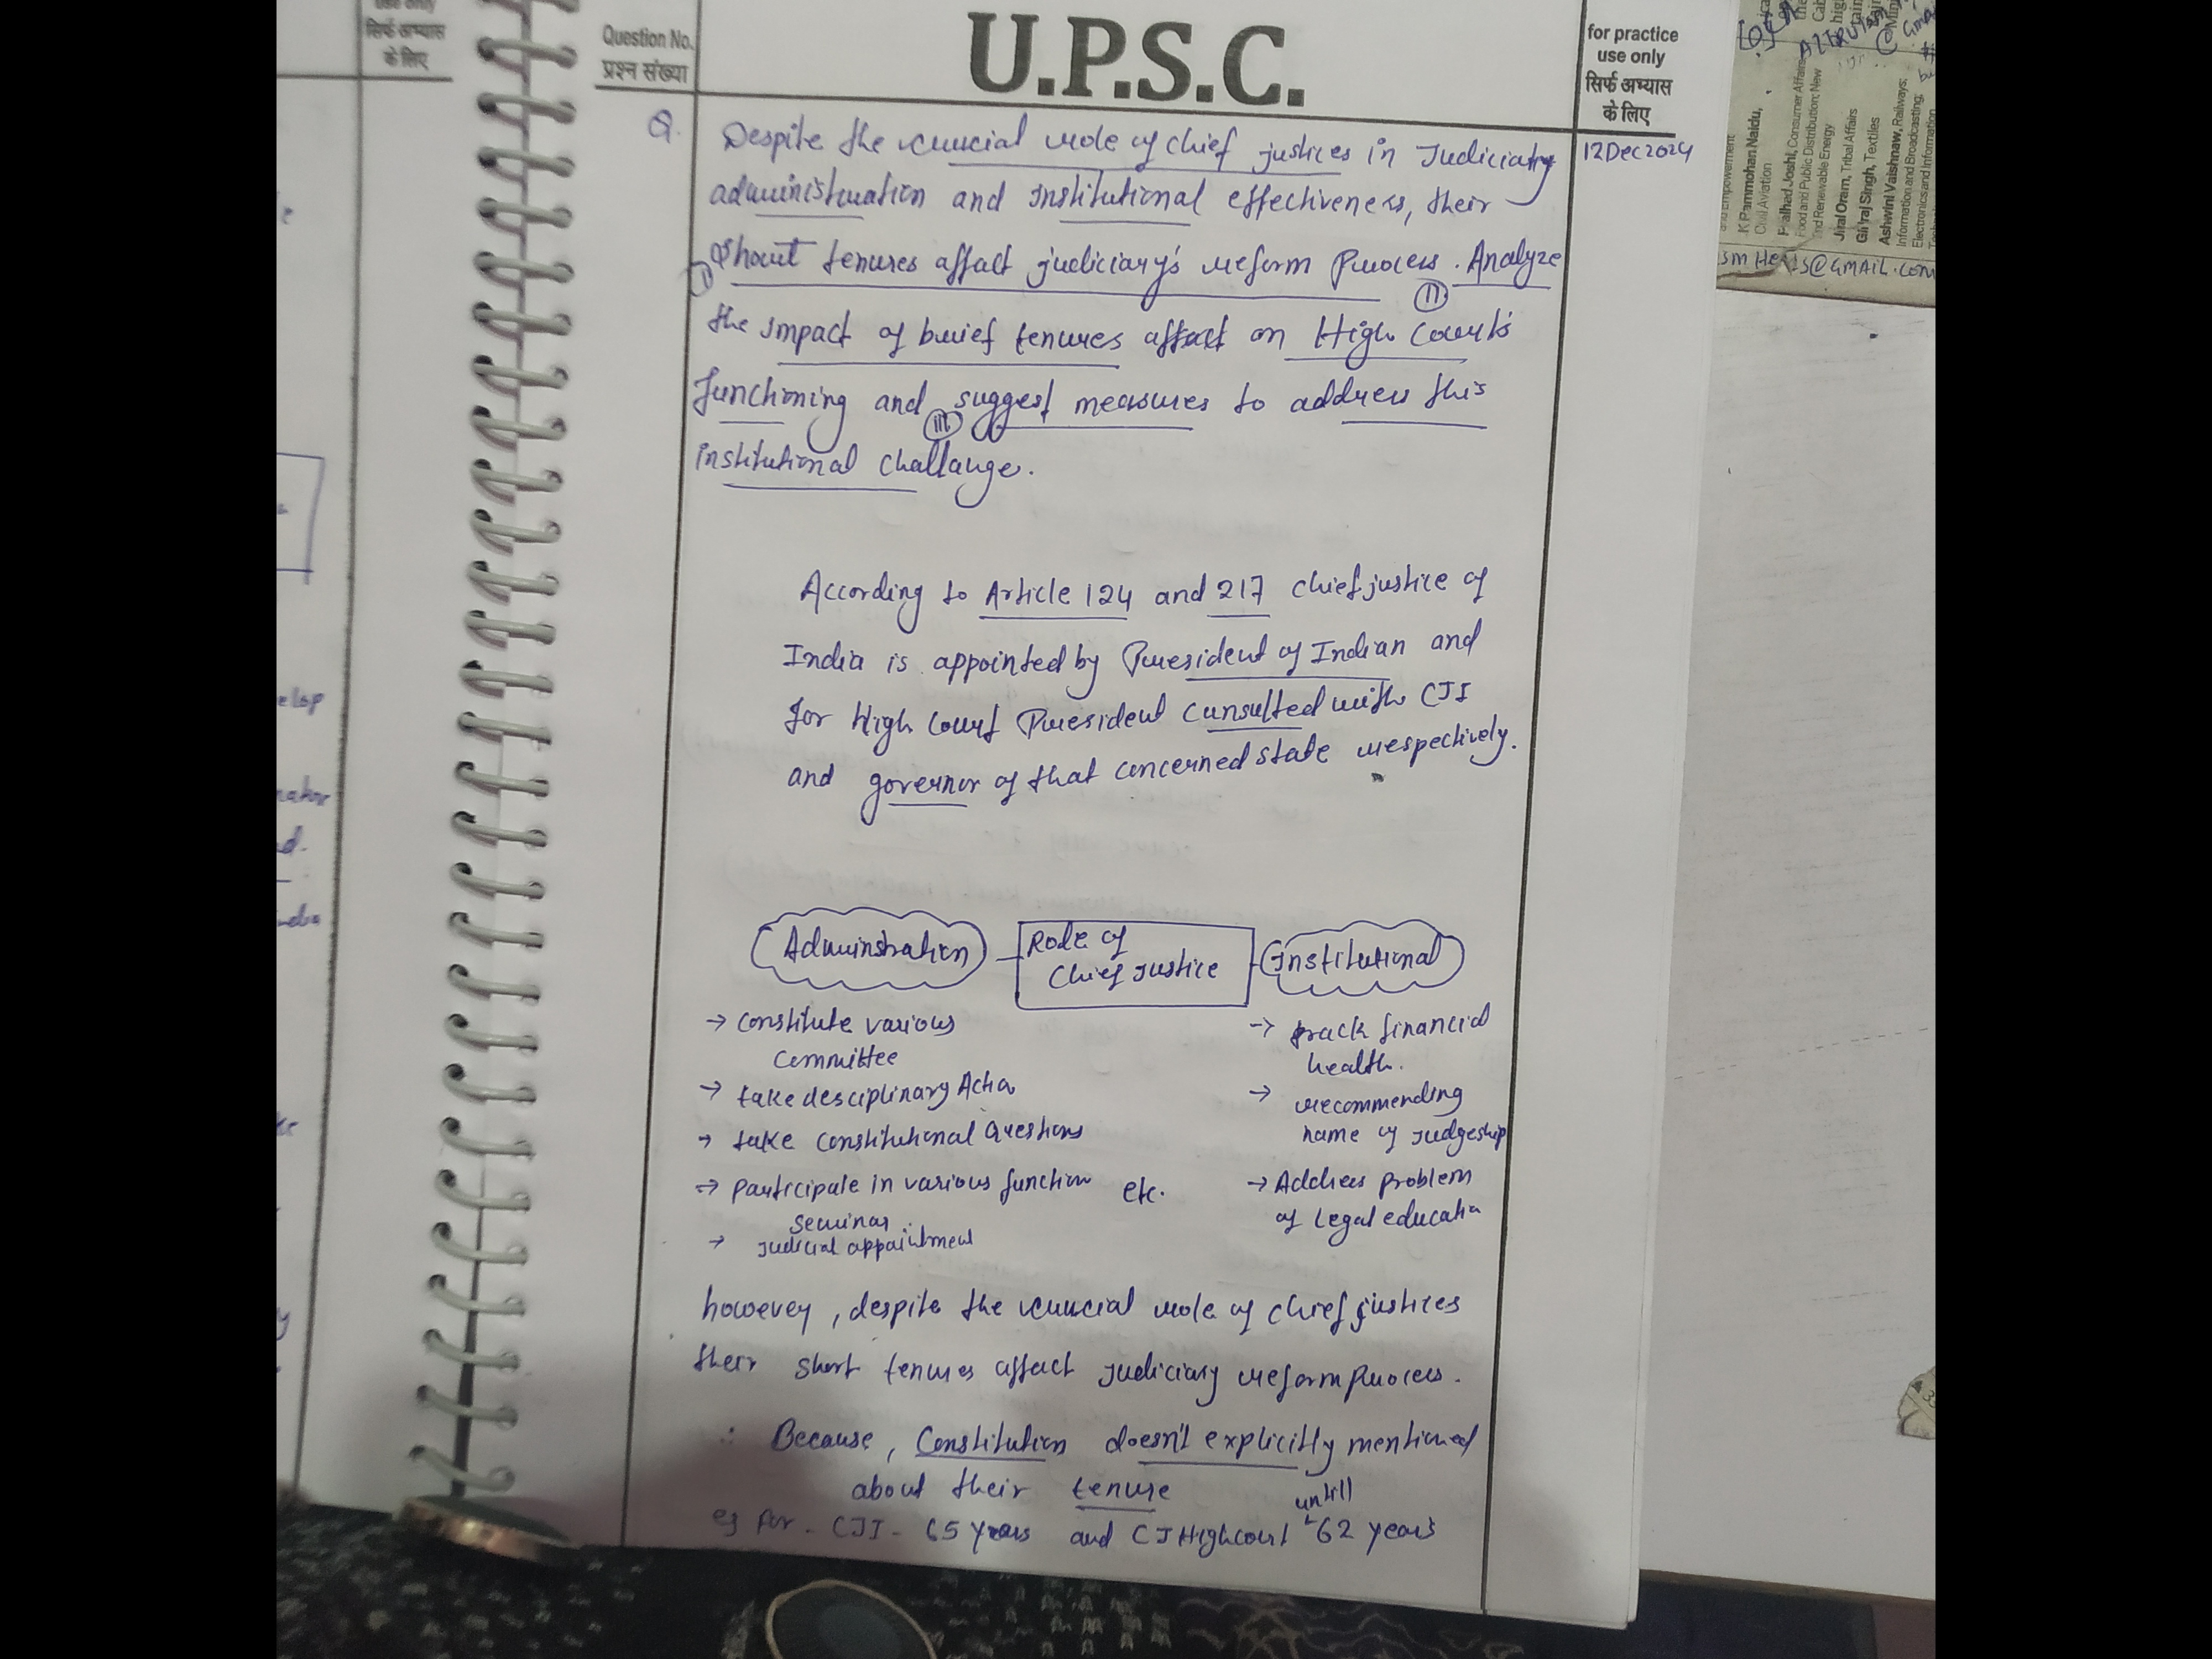 use only
सिर्फ अभ्यास
के लिए
elop
d.
Question No.
प्रश्न संख्या
U.P.S.C.
for practice
use only
सिर्फ अभ्यास
के लिए
12Dec2024
Q. Despite the crucial role of chief justices in Judiciary
administration and institutional effectiveness, their
(I) Short tenures affact judiciary's reform process. Analyze
(II)
the impact of brief tenures affact on High Court's
functioning and suggest measures to address this
(III)
institutional challange.
According to Article 124 and 217 chief justice of
India is appointed by President of Indian and
for High Court President consulted with CJI
and governor of that concerned state respectively.
Adminstration
Role of
Chief Justice
Institutional
→ constitute various
committee
→ take desciplinary Actio
→ take constitutional Questions
→ participate in various function etc.
seminar
→ Judicial appointment
→ track financial
health.
→ recommending
name of Judgeship
→ Address problem
of Legal educatio
however, despite the crucial role of chief justices
their short tenures affact Judiciary reform process.
∴ Because, Constitution doesn't explicitly mentioned
about their tenure
eg for - CJI - 65 years and CJ Highcourt until 62 years
K Rammohan Naidu,
Civil Aviation
Pralhad Joshi, Consumer Affairs,
Food and Public Distribution; New
and Renewable Energy
Jual Oram, Tribal Affairs
Giriraj Singh, Textiles
Ashwini Vaishnaw, Railways;
Information and Broadcasting;
Electronics and Information
S@GMAIL.COM